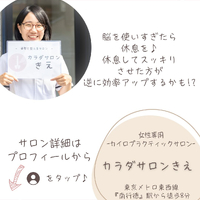 カラダサロン
きえ
脳を使いすぎたら
休息を♪
休息してスッキリ
させた方が
逆に効率アップするかも!?
サロン詳細は
プロフィールから
をタップ♪
女性専用
-カイロプラクティックサロン-
カラダサロンきえ
東京メトロ東西線
『南行徳』駅から徒歩8分